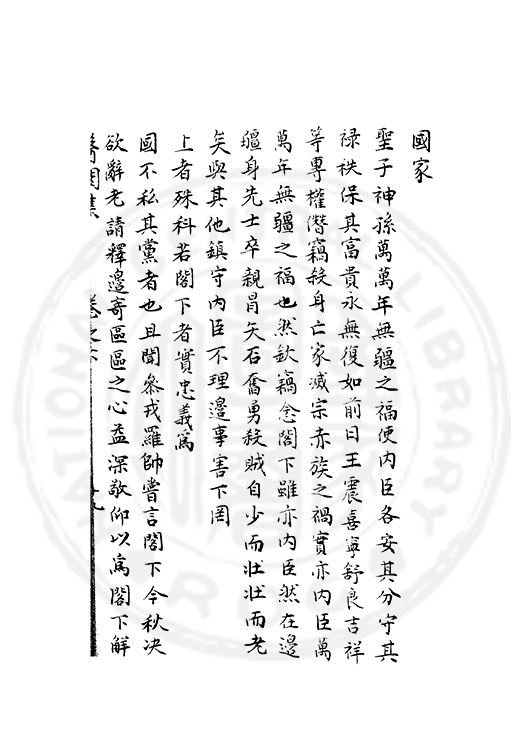 國家
聖子神孫萬萬年無疆之福使内臣各安其分守其
禄秩保其富貴永無復如前日王震喜寧舒良吉祥
等專權僣竊殺身亡家滅宗赤族之禍實亦内臣萬
萬年無疆之福也然欽竊念閤下雖亦内臣然在邉
疆身先士卒親冐矢石奮勇殺賊自少而壯壯而老
矣與其他鎮守内臣不理邉事害下罔
上者殊科若閤下者實忠義爲
國不私其黨者也且聞叅戎羅帥嘗言閤下今秋决
欲辭老請釋邉寄區區之心益深敬仰以爲閤下解
醫閭集 卷之六 十九